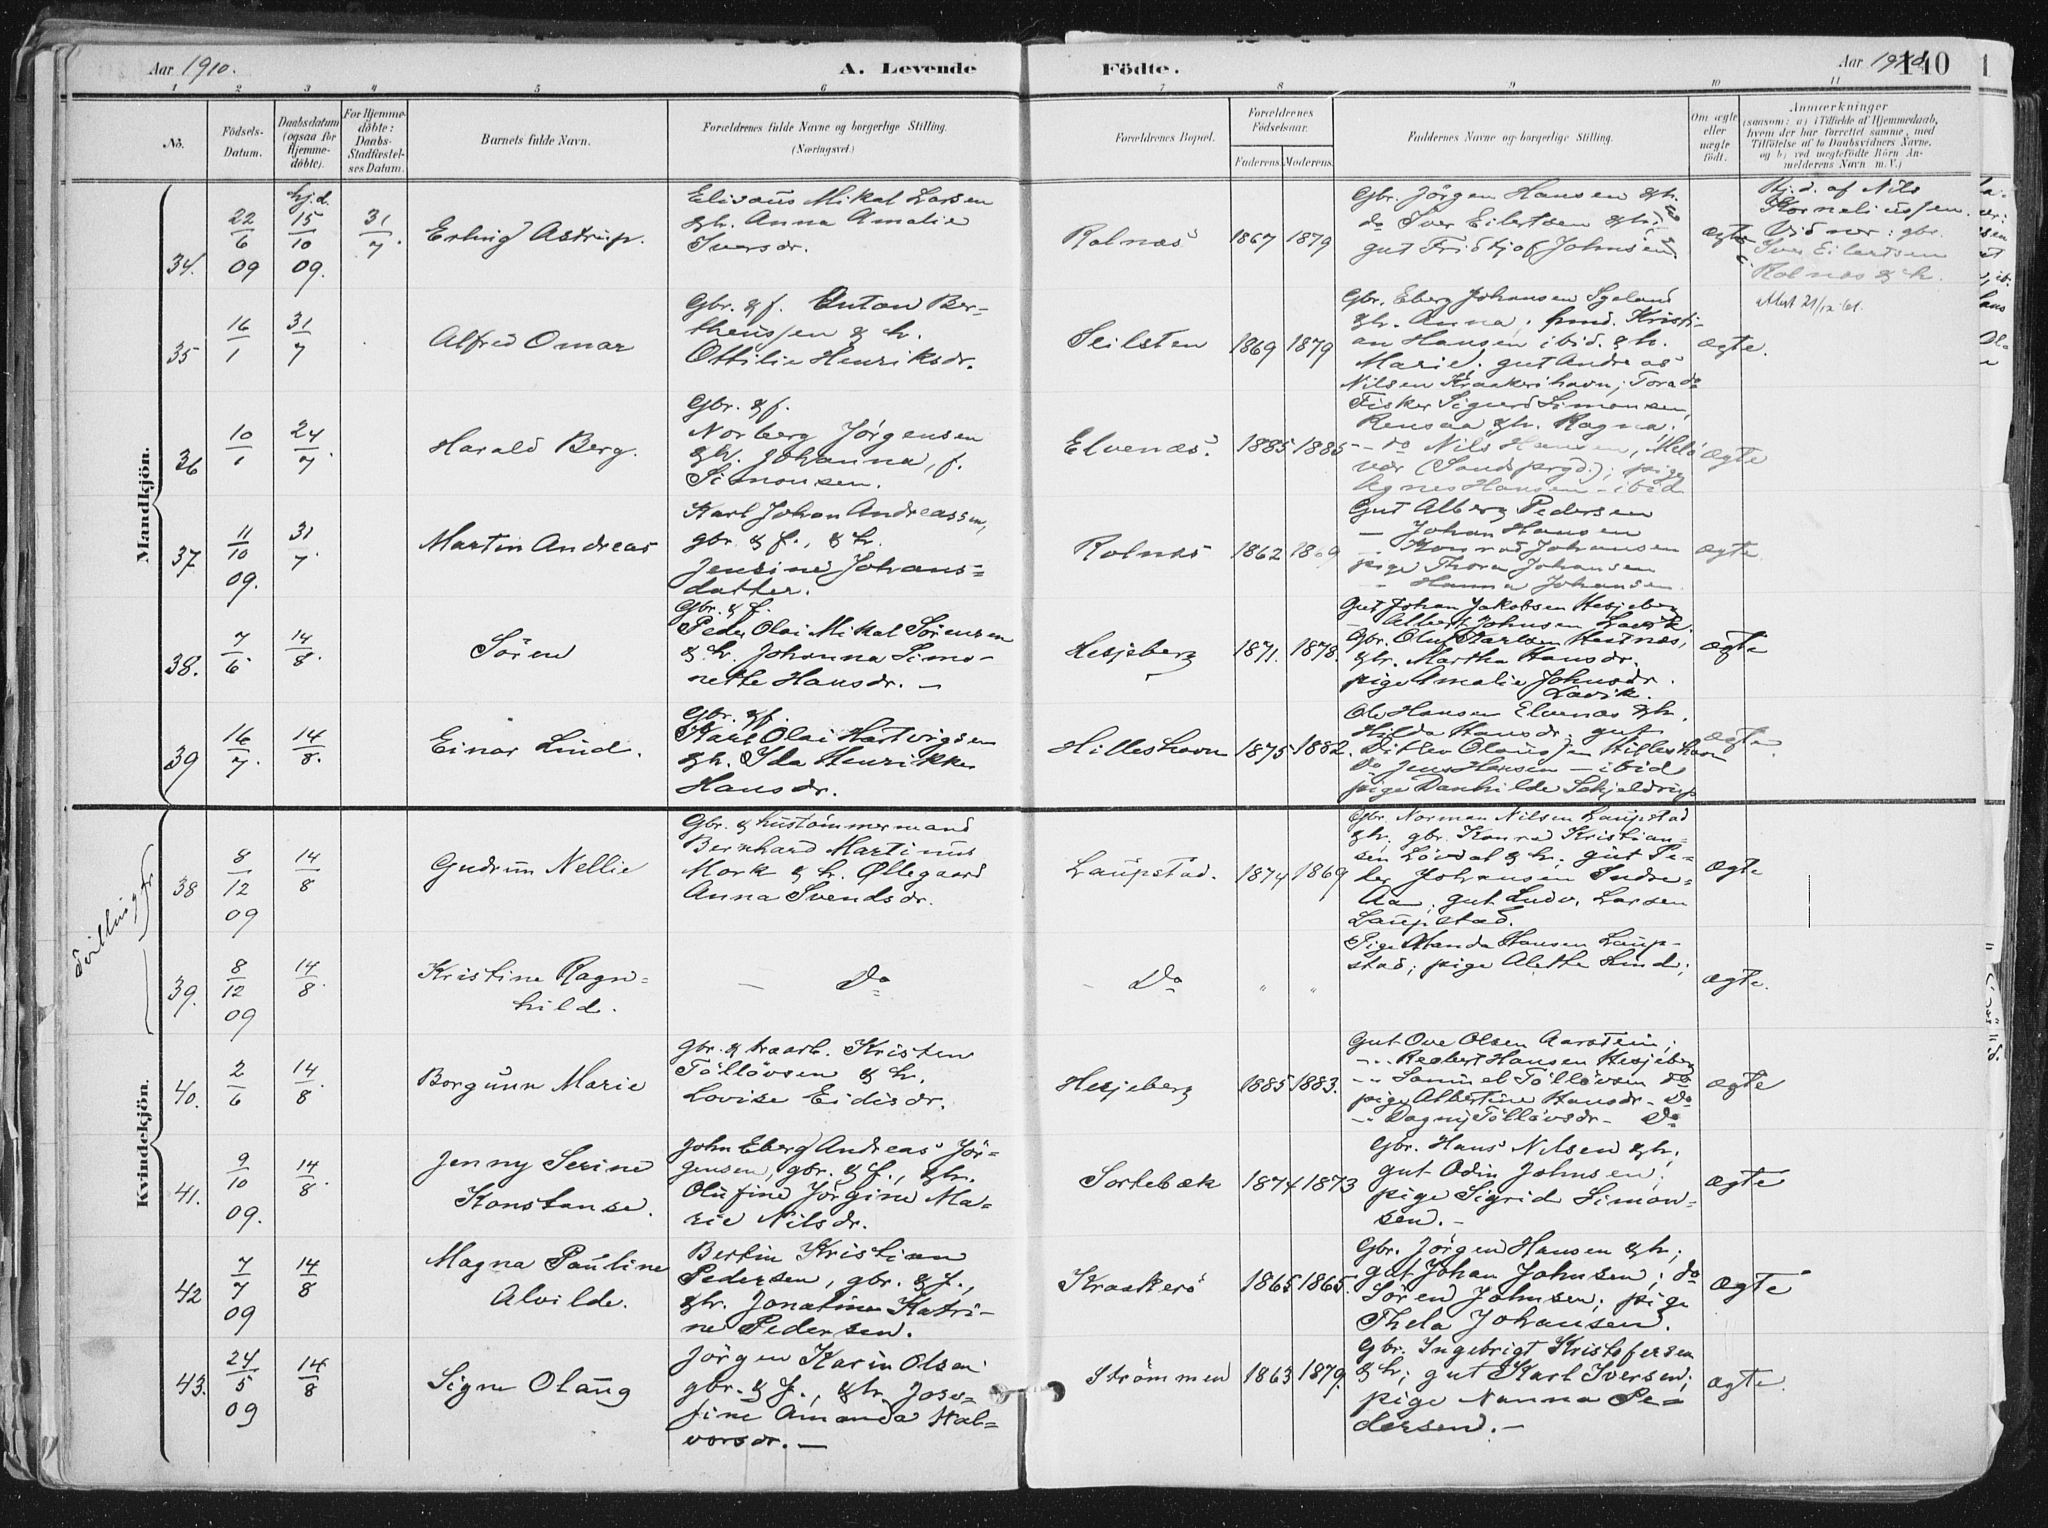 Aar 1910.
A. Levende
Födte.
Aar 1910.
140
1 2 3 4 5 6 7 8 9 10 11
No.
Födsels-
Datum.
Daabsdatum
(ogsaa for
Hjemme-
döbte).
For Hjemme-
döbte:
Daabs-
Stadfæstel-
ses Datum.
Barnets fulde Navn.
Forældrenes fulde Navne og borgerlige Stilling.
(Næringsvei.)
Forældrenes Bopæl.
Forældrenes
Födselsaar.
Faderens. Moderens.
Faddernes Navne og borgerlige Stilling.
Om ægte
eller
uægte
födt.
Anmærkninger
(saasom: a) i Tilfælde af Hjemmedaab,
hvem der har forrettet samme, med
Tilföielse af to Daabsvidners Navne,
og b) ved uægtefödte Börn An-
melderens Navn m. V.)
Mandkjön.
34.
22/6 09
hj.d.
15/10 09.
31/7.
Erling Astrup.
Elisæus Mikal Larsen
& h. Anna Amalie
Iversdr.
Rolnæs
1867 1879
Gbr. Jörgen Hansen & h.
do Iver Eilertsen & h.
gut Fridtjof Johnsen
ægte
Hj.d. af Nils
Korneliussen.
Vidner: gbr.
Iver Eilertsen
Rolnæs & h.
35
16/1
31/7
Alfred Omar
Gbr. & f. Anton Ber-
theussen & h.
Ottilie Henriksdr.
Seilsten
1869 1879
Gbr. Eberg Johansen
& h. Anna; Kristi-
an Hansen ibid. & h.
Marie; gut Andreas
Nilsen Kraakerihavn; Tora do
ægte.
attest 21/12 61.
36
10/1
24/7.
Harald Berg.
Gbr. & f.
Norberg Jörgensen
& h. Johanna, f.
Simonsen.
Elvenæs
1885 1885
Fisker Sigurd Simonsen,
Rensaa & h. Ragna.
- do Nils Hansen, Melö
vær (Sands prgd.); pige
Agnes Hansen - ibid
ægte
37
11/10 09.
31/7
Martin Andreas
Karl Johan Andreassen,
gbr. & f., & h.
Jensine Johans-
datter.
Rolnæs
1862
Gut Alberg Pedersen
- Johan Hansen
- Konrad Johansen
pige Thora Johansen
- Hanna Johansen
ægte.
38.
7/6
14/8.
Sören
Gbr. & f.
Peder Olai Mikal Sörensen
& h. Johanna Simo-
nette Hansdr. -
Hesjeberg
1871. 1878.
Gut Johan Jakobsen Hesjeberg
- Albert Johnsen Lavik.
Gbr. Oluf Karlsen Hestnæs,
& h. Martha Hansdr.
pige Amalie Johnsdr.
Lavik.
ægte
39
16/7.
14/8.
Einar Lind.
Gbr. & f.
Karl Olai Hartvigsen
& h. Ida Henrikke
Hansdr.
Hilleshavn
1875 1882.
Ole Hansen Elvenæs & h.
Hilda Hansdr. gut
Ditlev Olaussen Hilleshavn
Do Jens Hansen - ibid
pige Danhilde Schjeldrup
ægte.
Kvindekjön.
Tvillinger
38
8/12 09
14/8
Gudrun Nellie
Gbr. & hustömmermand
Bernhard Martinus
Mork & h. Øllegaard
Anna Svendsdr.
Laupstad.
1874 1869
Gbr. Norman Nilsen Laupstad
& h; gbr. Konrad Kristian-
sen Lövdal & h; gut Pe-
der Johansen Indre-
Aa; gut Ludv. Larsen
Laupstad.
ægte
39.
8/12 09
14/8.
Kristine Ragn-
hild.
- Do
- Do
" "
Pige Handa Hansen Laup-
stad; pige Alette Lind;
ægte.
40.
2/6
14/8.
Borgunn Marie
Gbr. & træarb. Kristen
Töllövsen & h.
Lovise Eidisdr.
Hesjeberg
1885 1883.
Gut Ove Olsen Aarstein;
-"- Reabert Hansen Hesjeberg
-"- Samuel Töllövsen do
pige Albertine Hansdr - Do
-"- Dagny Töllövsdr - Do
ægte
41.
9/10 09.
14/8.
Jenny Serine
Konstanse.
John Eberg Andreas Jör-
gensen, gbr. & f., & h.
Olufine Jörgine Ma-
rie Nilsdr.
Sortebæk
1874 1873
Gbr. Hans Nilsen & h.
gut Odin Johnsen;
pige Sigrid Simon-
sen. -
ægte
42
7/7 09
14/8
Magna Pauline
Alvilde.
Bertin Kristian
Pedersen, gbr. & f.,
& h. Jonatine Katri-
ne Pedersen.
Kraakerö
1865 1865.
Gbr. Jörgen Hansen & h;
gut Johan Johnsen; do
Sören Johnsen; pige
Thela Johansen.
ægte
43.
24/5 09
14/8
Signe Olaug
Jörgen Karin Olsen
gbr. & f., & h. Jose-
fine Amanda Hal-
vorsdr. -
Strömmen
1863 1879.
Gbr. Ingebrigt Kristofersen
& h; gut Karl Iversen;
pige Nanna Pe-
dersen. -
ægte.